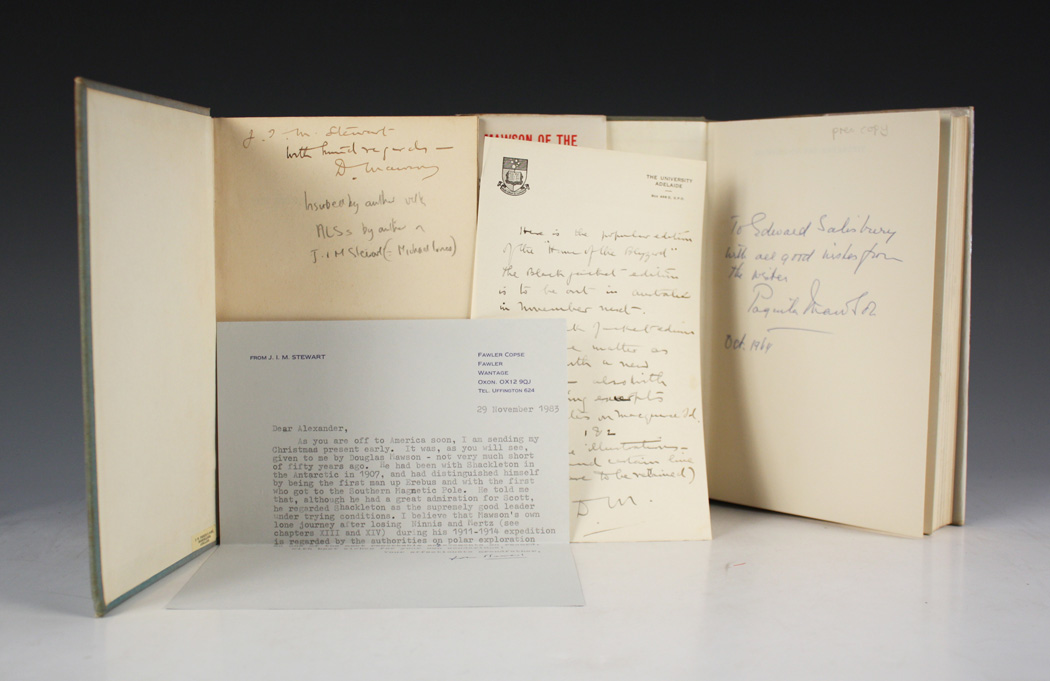 J. I. M. Stewart
with kind regards —
D. Mawson
Inscribed by author with
ALSs by author &
J.I.M Stewart (= Michael Innes)
MAWSON OF THE
THE UNIVERSITY
ADELAIDE
Here is the popular edition
of the "Home of the Blizzard"
The Black jacket edition
is to be out in Australia
in November next.
jacket edition
matter as
with a new
also with
excerpts
on Macquarie Isd.
illustrations
to be retained)
D. M.
pres copy
To Edward Salisbury
with all good wishes from
the writer
Paquita Mawson
Oct. 1964
FROM J. I. M. STEWART
FAWLER COPSE
FAWLER
WANTAGE
OXON. OX12 9QJ
TEL. UFFINGTON 624
29 November 1983
Dear Alexander,
As you are off to America soon, I am sending my
Christmas present early. It was, as you will see,
given to me by Douglas Mawson - not very much short
of fifty years ago. He had been with Shackleton in
the Antarctic in 1907, and had distinguished himself
by being the first man up Erebus and with the first
who got to the Southern Magnetic Pole. He told me
that, although he had a great admiration for Scott,
he regarded Shackleton as the supremely good leader
under trying conditions. I believe that Mawson's own
lone journey after losing Ninnis and Mertz (see
chapters XIII and XIV) during his 1911-1914 expedition
is regarded by the authorities on polar exploration